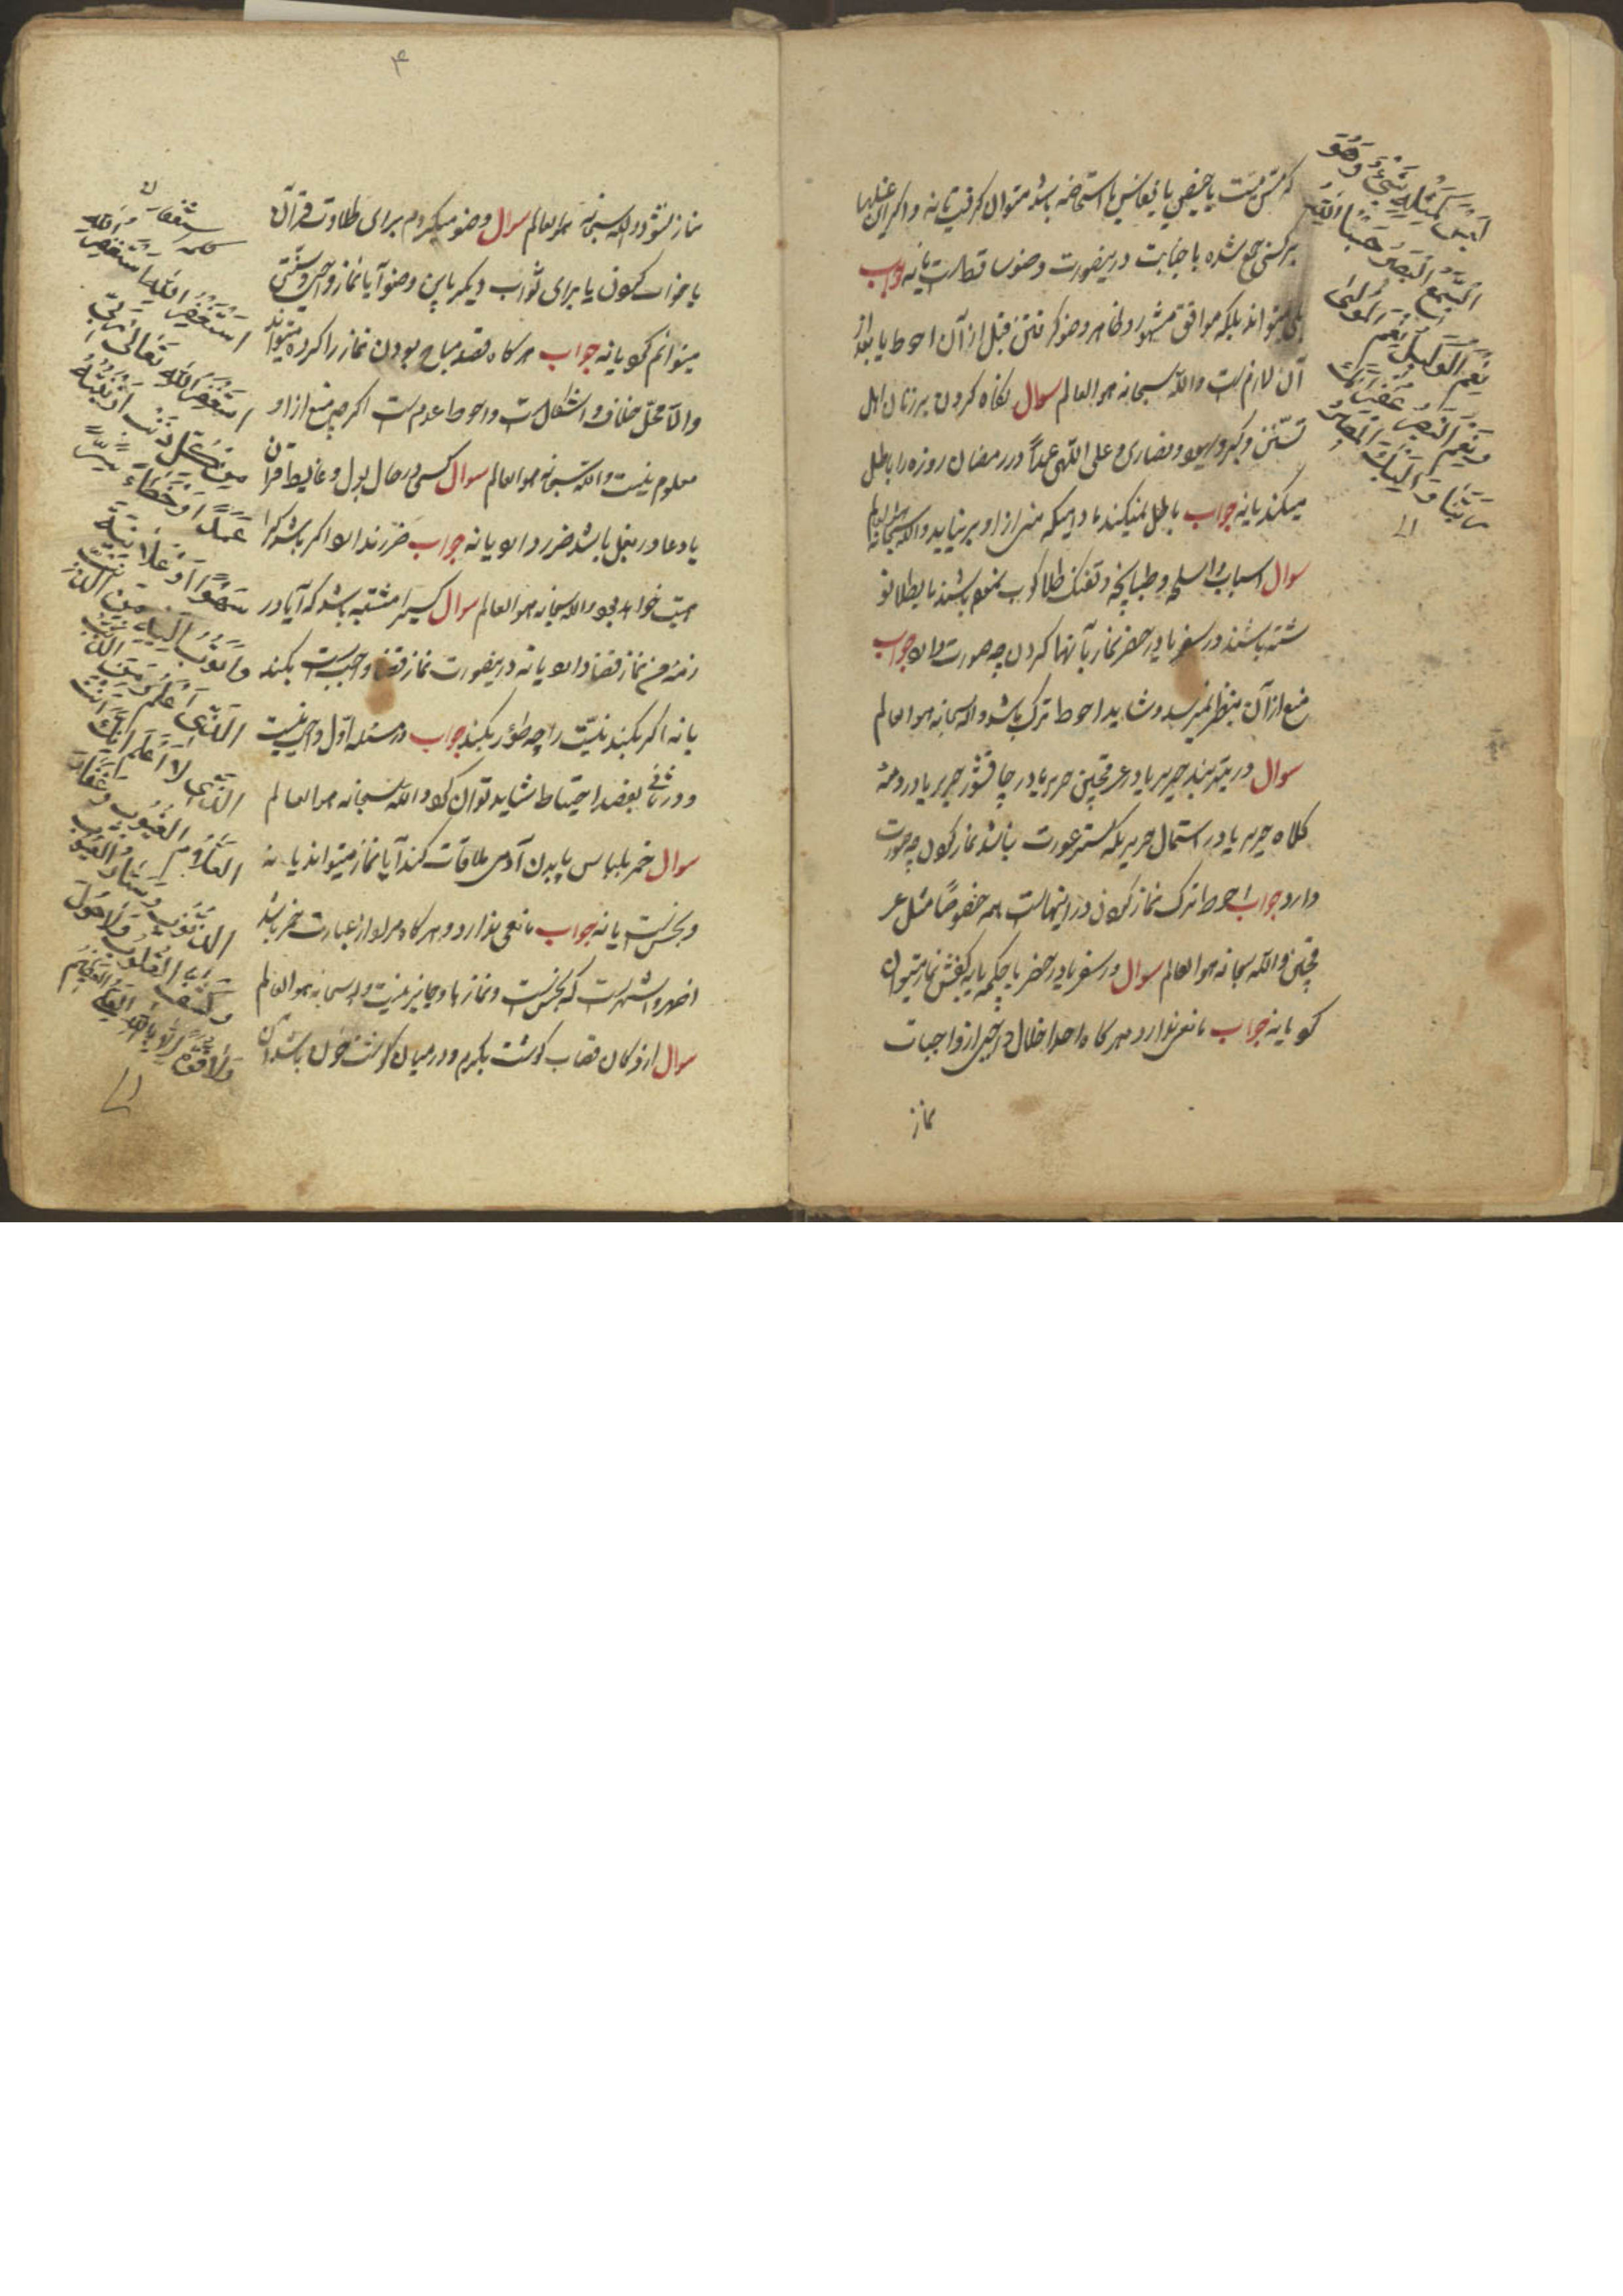 که مسّ میّت یا حیض یا نفاس یا استحاضه باشد میتوان گرفت یا نه و اگر این غسلها
بر کسی جمع شده با جنابت در ینصورت وضو ساقط است یا نه جواب
بلی میتواند بلکه موافق مشهور و ظاهر وضو گرفتن قبل از آن احوط یا بعد از
آن لازم است والله سبحانه هو العالم سوال نگاه کردن بر زنان اهل
تسنّن و کبر و یهود و نصاری و علی اللّهی عمداً در رمضان روزه را باطل
میکند یا نه جواب باطل نمیکند مادامیکه منی از او بر نیاید والله سبحانه هو العالم
سوال اسباب و اسلحه و طپانچه و تفنک طلا کوب
شته باشند در سفر یا در حضر نماز با آنها کردن چه صورت دارد جواب
منع از آن بنظر نمیرسد و شاید احوط ترک باشد والله سبحانه هو العالم
سوال در بند حریر یا در عرقچین حریر یا در چاقشور حریر یا در دمه
کلاه حریر یا در استعمال حریر که ستر عورت باشد نماز کردن چه صورت
دارد جواب احوط ترک نماز کردن در اینهاست همه خصوصًا مثل عر
قچین والله سبحانه هو العالم سوال در سفر یا در حضر با چکمه یا به کفش نماز میتوان
کرد یا نه جواب مانعی ندارد هر گاه احداث خلل در چیزی از واجبات
نماز
لَیْسَ کَمِثْلِهِ شَیْءٌ وَهُوَ
السَّمیعُ البَصیرُ حَسْبُنَا اللهُ
نِعْمَ الوَکیلُ نِعْمَ المَولیٰ
وَنِعْمَ النَّصیرُ غُفْرانَکَ
رَبَّنَا وَاِلَیْکَ المَصیرُ
۴
نماز نشود والله سبحانه هو العالم سوال وضو میکیرم برای تلاوت قرآن
یا خواب کردن یا برای ثواب دیکر با این وضو آیا نماز واجبی و سنّتی
میتوانم کرد یا نه جواب هر گاه قصد مباح بودن نماز را کرده میتواند
والّا محلّ خلاف و اشکال است و احوط عدم است اگر چه منع از او
معلوم نیست والله سبحانه هو العالم سوال کسی در حال بول و غایط قرآن
یا دعا در بغل باشد ضرر دارد یا نه جواب ضرر ندارد اگر باشد
والله سبحانه هو العالم سوال کسیرا مشتبه باشد که آیا در
ذمّهٔ من نماز قضا دارد یا نه در ینصورت نماز قضا واجب است بکند
یا نه اگر بکند نیّت را چه طور بکند جواب در مسئله اوّل واجب نیست
و در ثانی بقصد احتیاط شاید توان کرد والله سبحانه هو العالم
سوال خمر بلباس یا بدن آدمی ملاقات کند آیا نماز میتواند یا نه
و نجس است یا نه جواب مانعی ندارد و هر گاه مراد از عبارت خمر باشد
اظهر و اشهر است که نجس است و نماز با او جایز نیست والله سبحانه هو العالم
سوال از دکان قصاب کوشت بکیرم و در میان کوشت خون باشد آن
کلمه استغفار
اَسْتَغْفِرُ اللهَ اَسْتَغْفِرُ اللهَ
اَسْتَغْفِرُ اللهَ تَعَالیٰ رَبّی
مِنْ کُلِّ ذَنْبٍ اَذْنَبْتُهُ
عَمَدًا اَوْ خَطَاءً سِرًّا
سَهْوًا اَوْ عَلَانِیَةً
وَاَتُوبُ اِلَیْهِ مِنَ الذَّنْبِ
الَّذی اَعْلَمُ وَمِنَ الذَّنْبِ
الَّذی لَا اَعْلَمُ اِنَّکَ اَنْتَ
العَلَّامُ الغُیُوبِ وَغَفَّارُ
الذُّنُوبِ وَسَتَّارُ العُیُوبِ
وَکَشَّافُ القُلُوبِ وَلَاحَوْلَ
وَلَاقُوَّةَ اِلَّا بِاللهِ العَلیِّ العَظیمِ